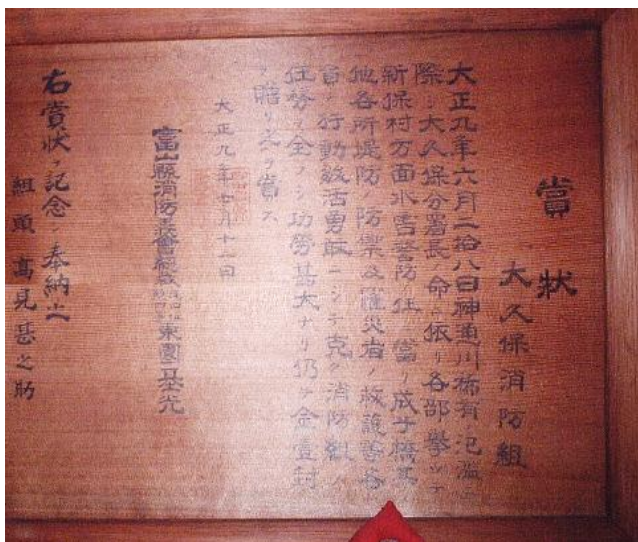 賞状
大久保消防組
大正九年六月二拾八日神通川稀有氾濫ニ
際シ大久保分署長ノ命ニ依リ各部挙ツテ
新保村方面水害警防ノ任ニ當リ成子橋其
他各所堤防ノ防禦及罹災者ノ救護
員ノ行動敏活勇敢ニシテ克ク消防組ノ
任務ヲ全フシ功勞甚大ナリ仍テ金壹封
ヲ贈リ之ヲ賞ス
大正九年七月十二日
富山縣消防義會総裁 東園基光
右賞状ヲ記念ニ奉納ス
組頭 高見甚之助